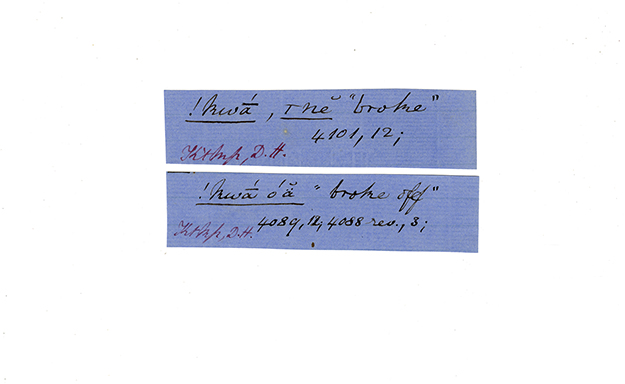 !kwā́, ⊤nĕ "broke"
4101, 12;
D.H.
!kwā́ óä "broke off"
D.H. 4089, 12, 4088 rev., 3;